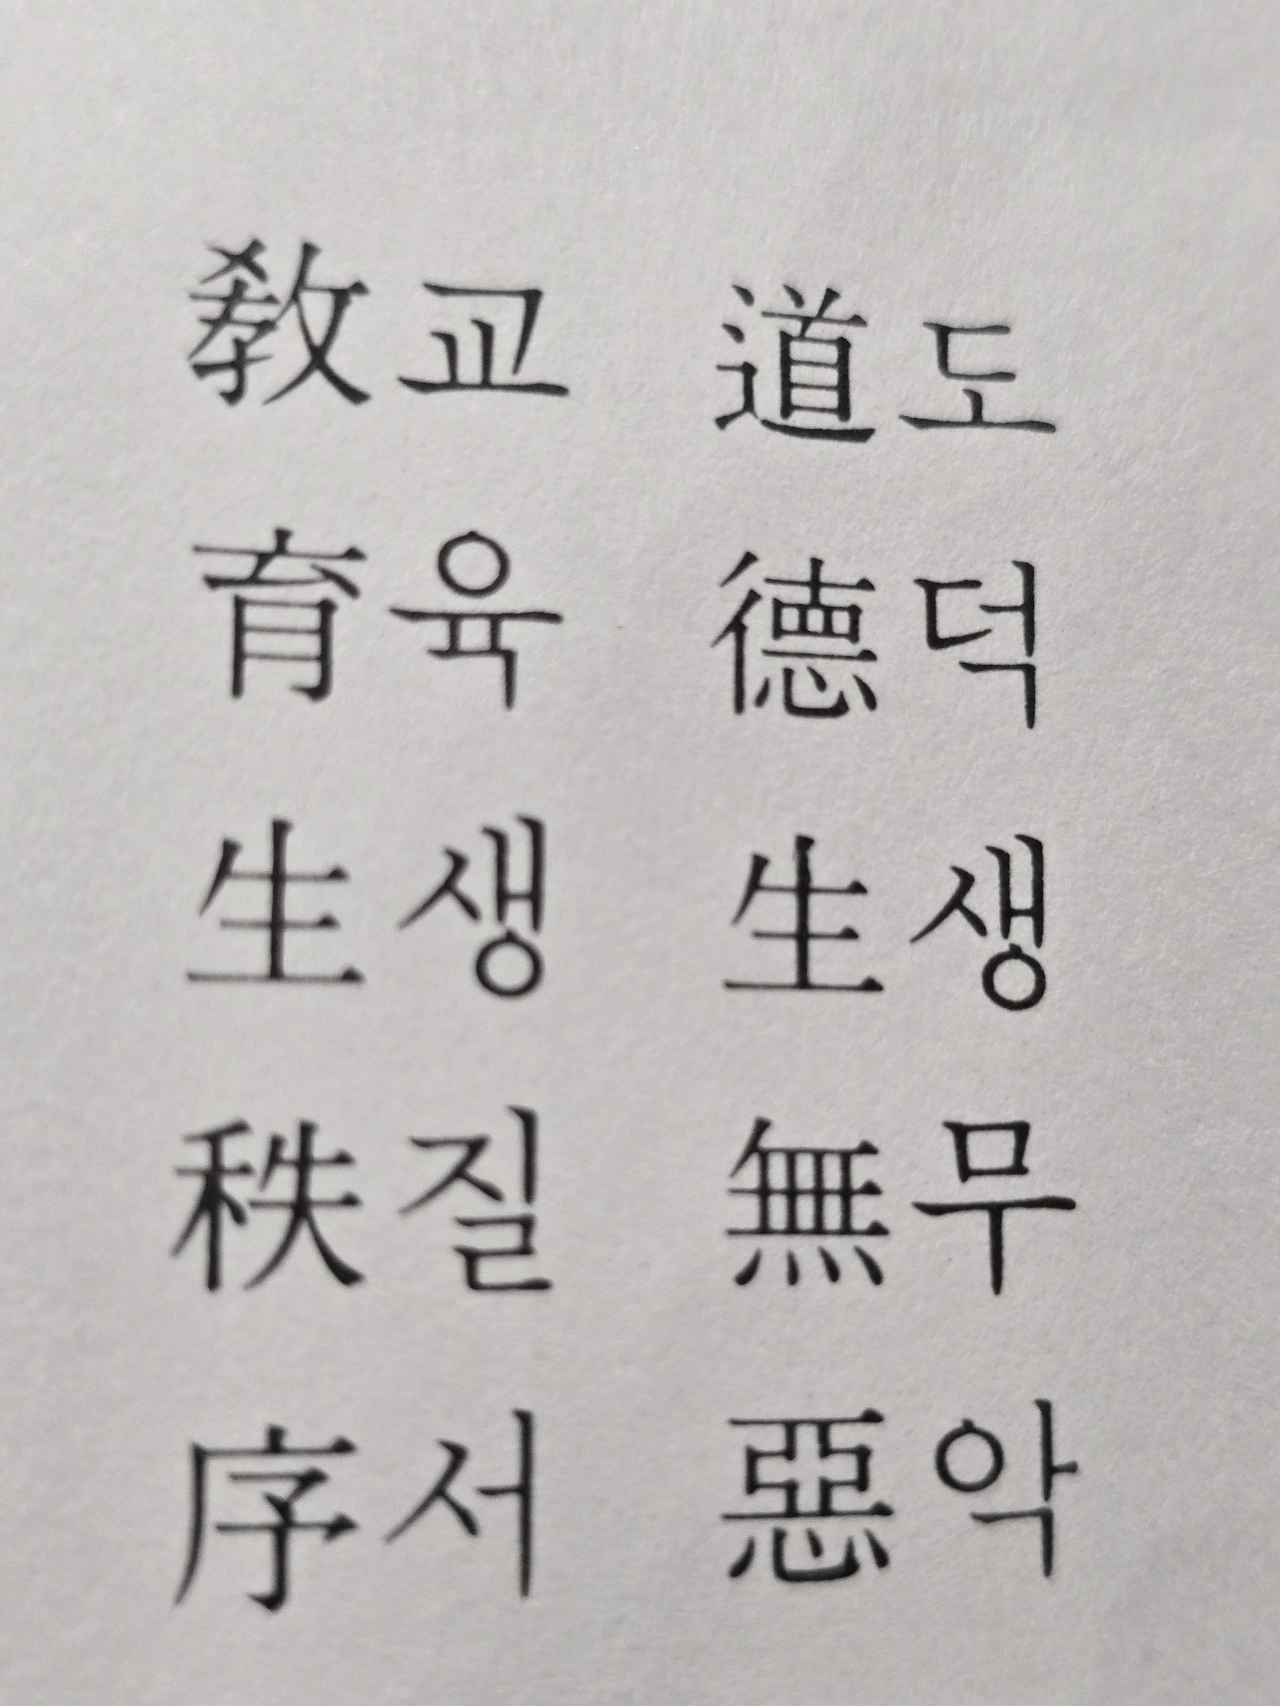 道德生無惡
도덕생무악
敎育生秩序
교육생질서